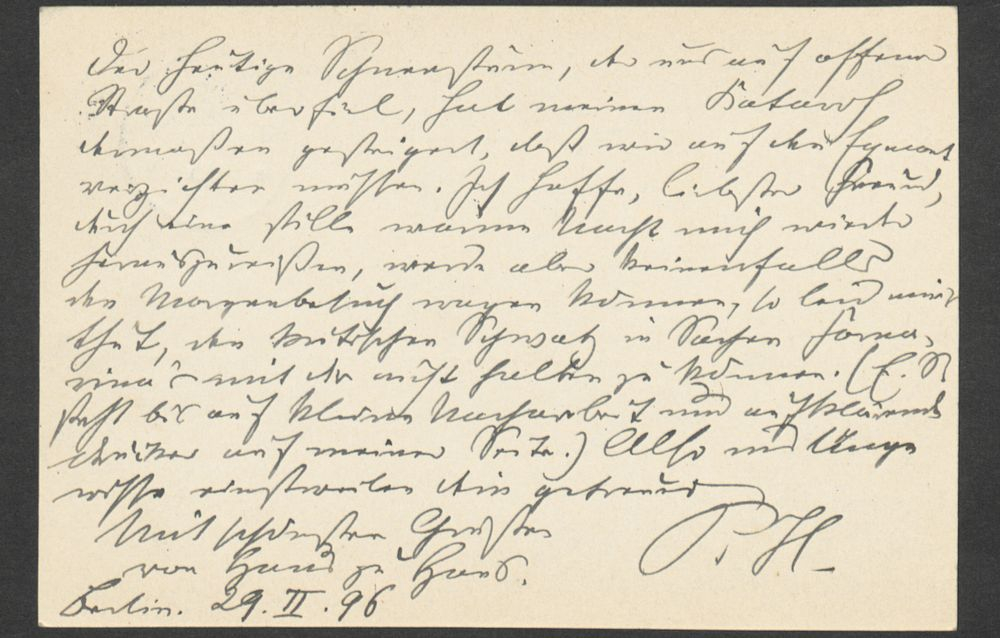 Der heutige Schneesturm, der uns auf offener
Straße überfiel, hat meinen Katarrh
dermaßen gesteigert, daß wir auf den Egmont
verzichten müssen. Ich hoffe, liebster Freund,
durch eine stille warme Nacht mich wieder
herauszureißen, werde aber keinenfalls
den Morgenbesuch wagen können, so leid mir's
thut, den kritischen Schwatz in Sachen Forna-
rina's mit dir nicht halten zu können. (E. R
steht bis auf kleine Nacharbeit und
drucker auf meiner Seite.) Also
einstweilen dein getreuer
Mit schönsten Grüßen
von Haus zu Haus.
P. H.
Berlin. 29. II. 96